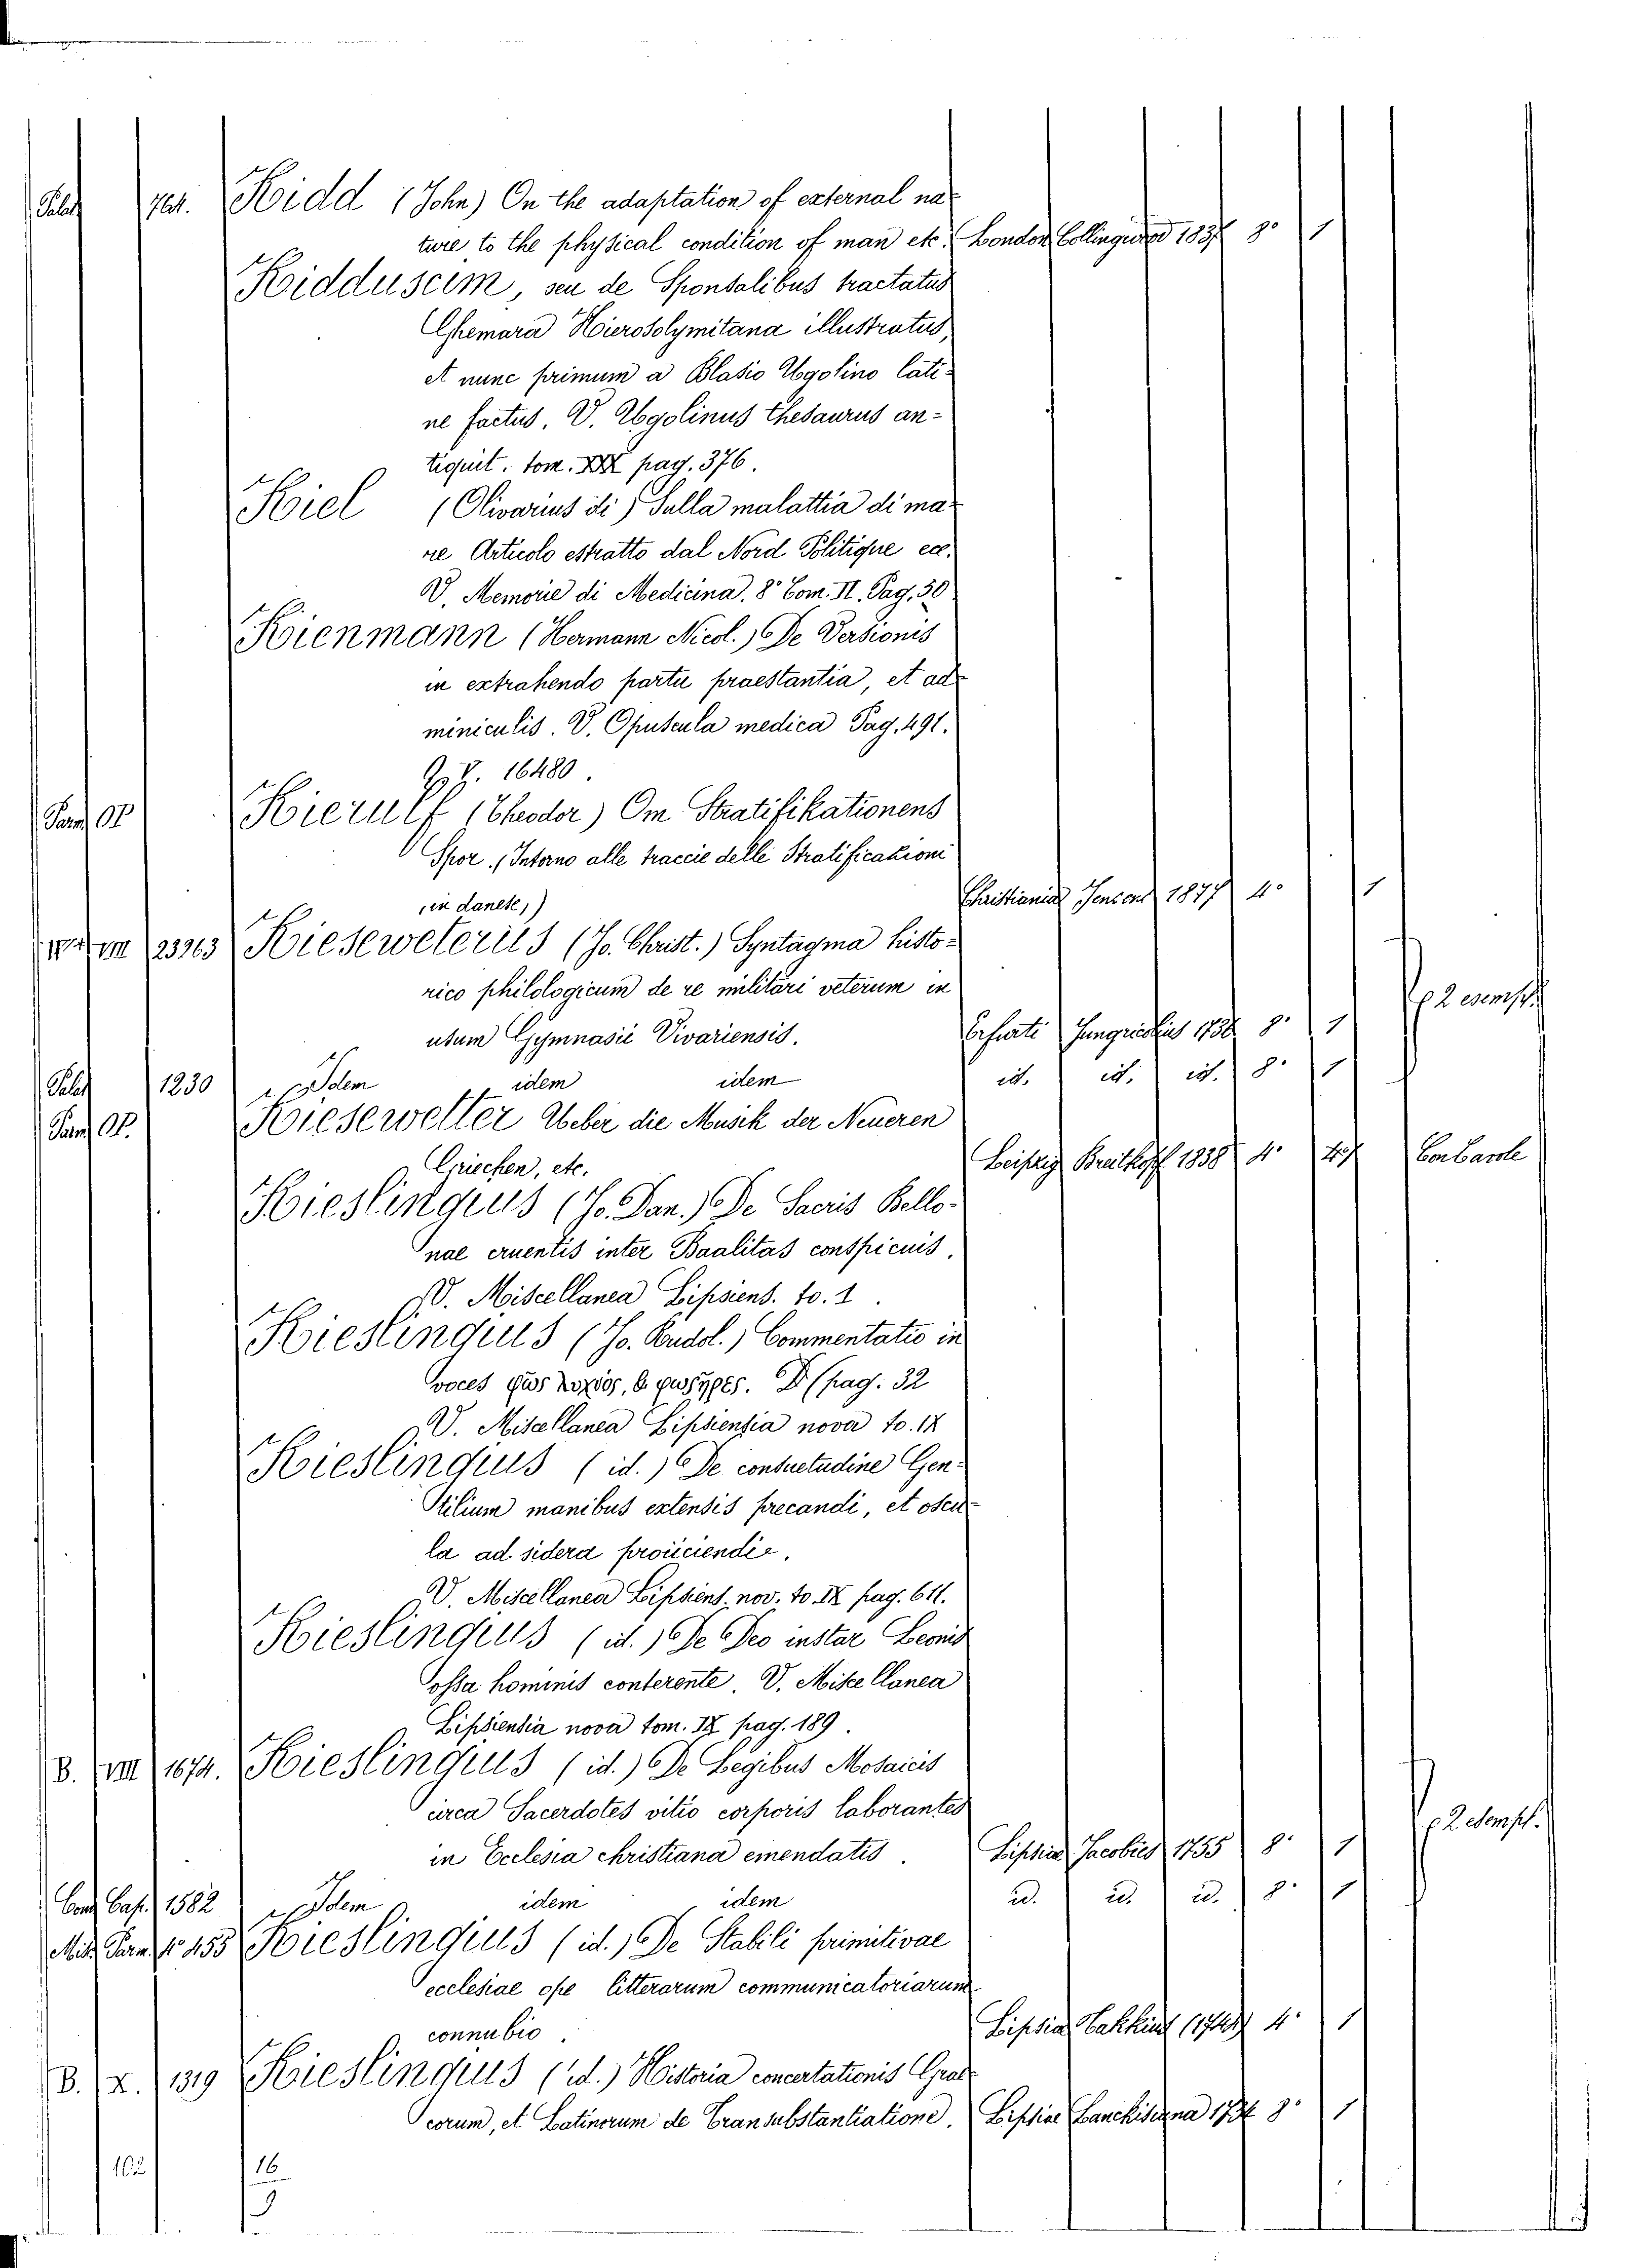 Palat 761. Kidd (John) On the adaptation of external na-
ture to the physical condition of man etc. London Collingwood 1837 8° 1
Kidduscim, seu de Sponsalibus tractatus
Ghemara Hierosolymitana illustratus,
et nunc primum a Blasio Ugolino lati-
ne factus. V. Ugolinus thesaurus an-
tiquit. tom. XXX pag. 376.
Kiel (Olivarius di) Sulla malattia di ma-
re Articolo estratto dal Nord Politique ecc.
V. Memorie di Medicina. 8° Tom. II. Pag. 50
Kienmann (Hermann Nicol.) De Versionis
in extrahendo partu praestantia, et ad-
miniculis. V. Opuscula medica Pag. 491.
16480.
Parm Op Kierulf (Theodor) Om Stratifikationens
Spor. (Intorno alle traccie delle Stratificazioni
(in danese,) Christiania Jensens 1877 4° 1
VIII 23363 Kieseweterus (Jo. Christ.) Syntagma histo-
rico philologicum de re militari veterum in
usum Gymnasii Vivariensis. Erfurti 8° 1 2 esempl.
Palat 1230 Idem idem idem id. id. id. 8° 1
Parm Op. Kiesewetter Ueber die Musik der Neueren
Griechen, etc. Leipzig Breitkopf 1838 4°
Kieslingius (Jo. Dan.) De Sacris Bello-
nae cruentis inter Baalitas conspicuis.
V. Miscellanea Lipsiens. to. 1.
Kieslingius (Jo. Rudol.) Commentatio in
voces pag. 32
V. Miscellanea Lipsiensia nova to. IX
Kieslingius (id.) De consuetudine Gen-
tilium manibus extensis precandi, et oscu-
la ad sidera proiiciendi.
V. Miscellanea Lipsiens. nov. to. IX pag. 611.
Kieslingius (id.) De Deo instar Leonis
ossa hominis conterente. V. Miscellanea
Lipsiensia nova tom. IX pag. 189.
B. VIII 1674. Kieslingius (id.) De Legibus Mosaicis
circa Sacerdotes vitio corporis laborantes
in Ecclesia christiana emendatis. Lipsiae Jacobies 1755 8° 1 2 esempl.
Cons Cap. 1582 Idem idem idem id. id. id. 8° 1
Misc Parm f° 455 Kieslingius (id.) De Stabili primitivae
ecclesiae ope litterarum communicatoriarum
connubio. Lipsiae 4° 1
B. X. 1319 Kieslingius (id.) Historia concertationis Grae-
corum, et Latinorum de Transubstantiatione. Lipsiae Lanckisiana 1754 8° 1
102 16
9